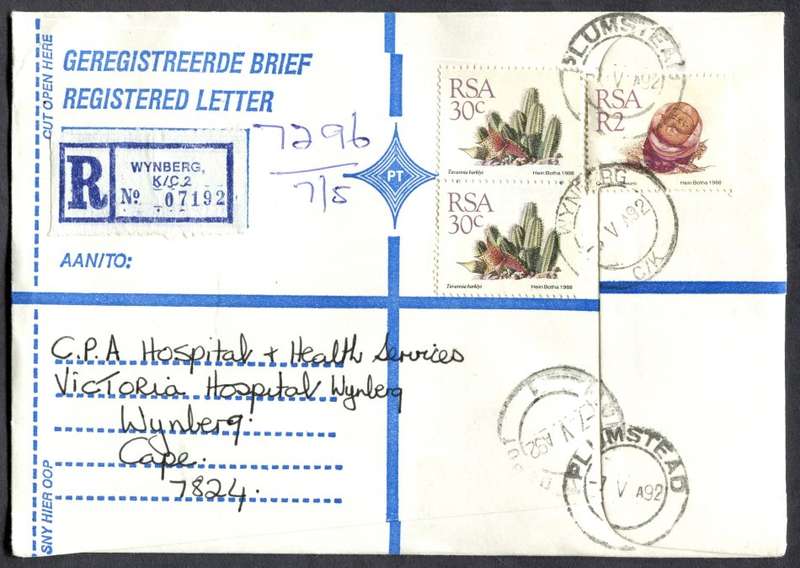 CUT OPEN HERE
GEREGISTREERDE BRIEF
REGISTERED LETTER
R
WYNBERG,
K/C.2
No 07192
7296
7/5
PT
AAN/TO:
RSA
30c
Hein Botha 1988
RSA
30c
Hein Botha 1988
RSA
R2
Hein Botha 1988
PLUMSTEAD
-7 V A92
WYNBERG
-7 V A92
C/K
C.P.A Hospital + Health Services
Victoria Hospital Wynberg
Wynberg.
Cape.
7824.
-7 V A92
PLUMSTEAD
-7 V A92
SNY HIER OOP